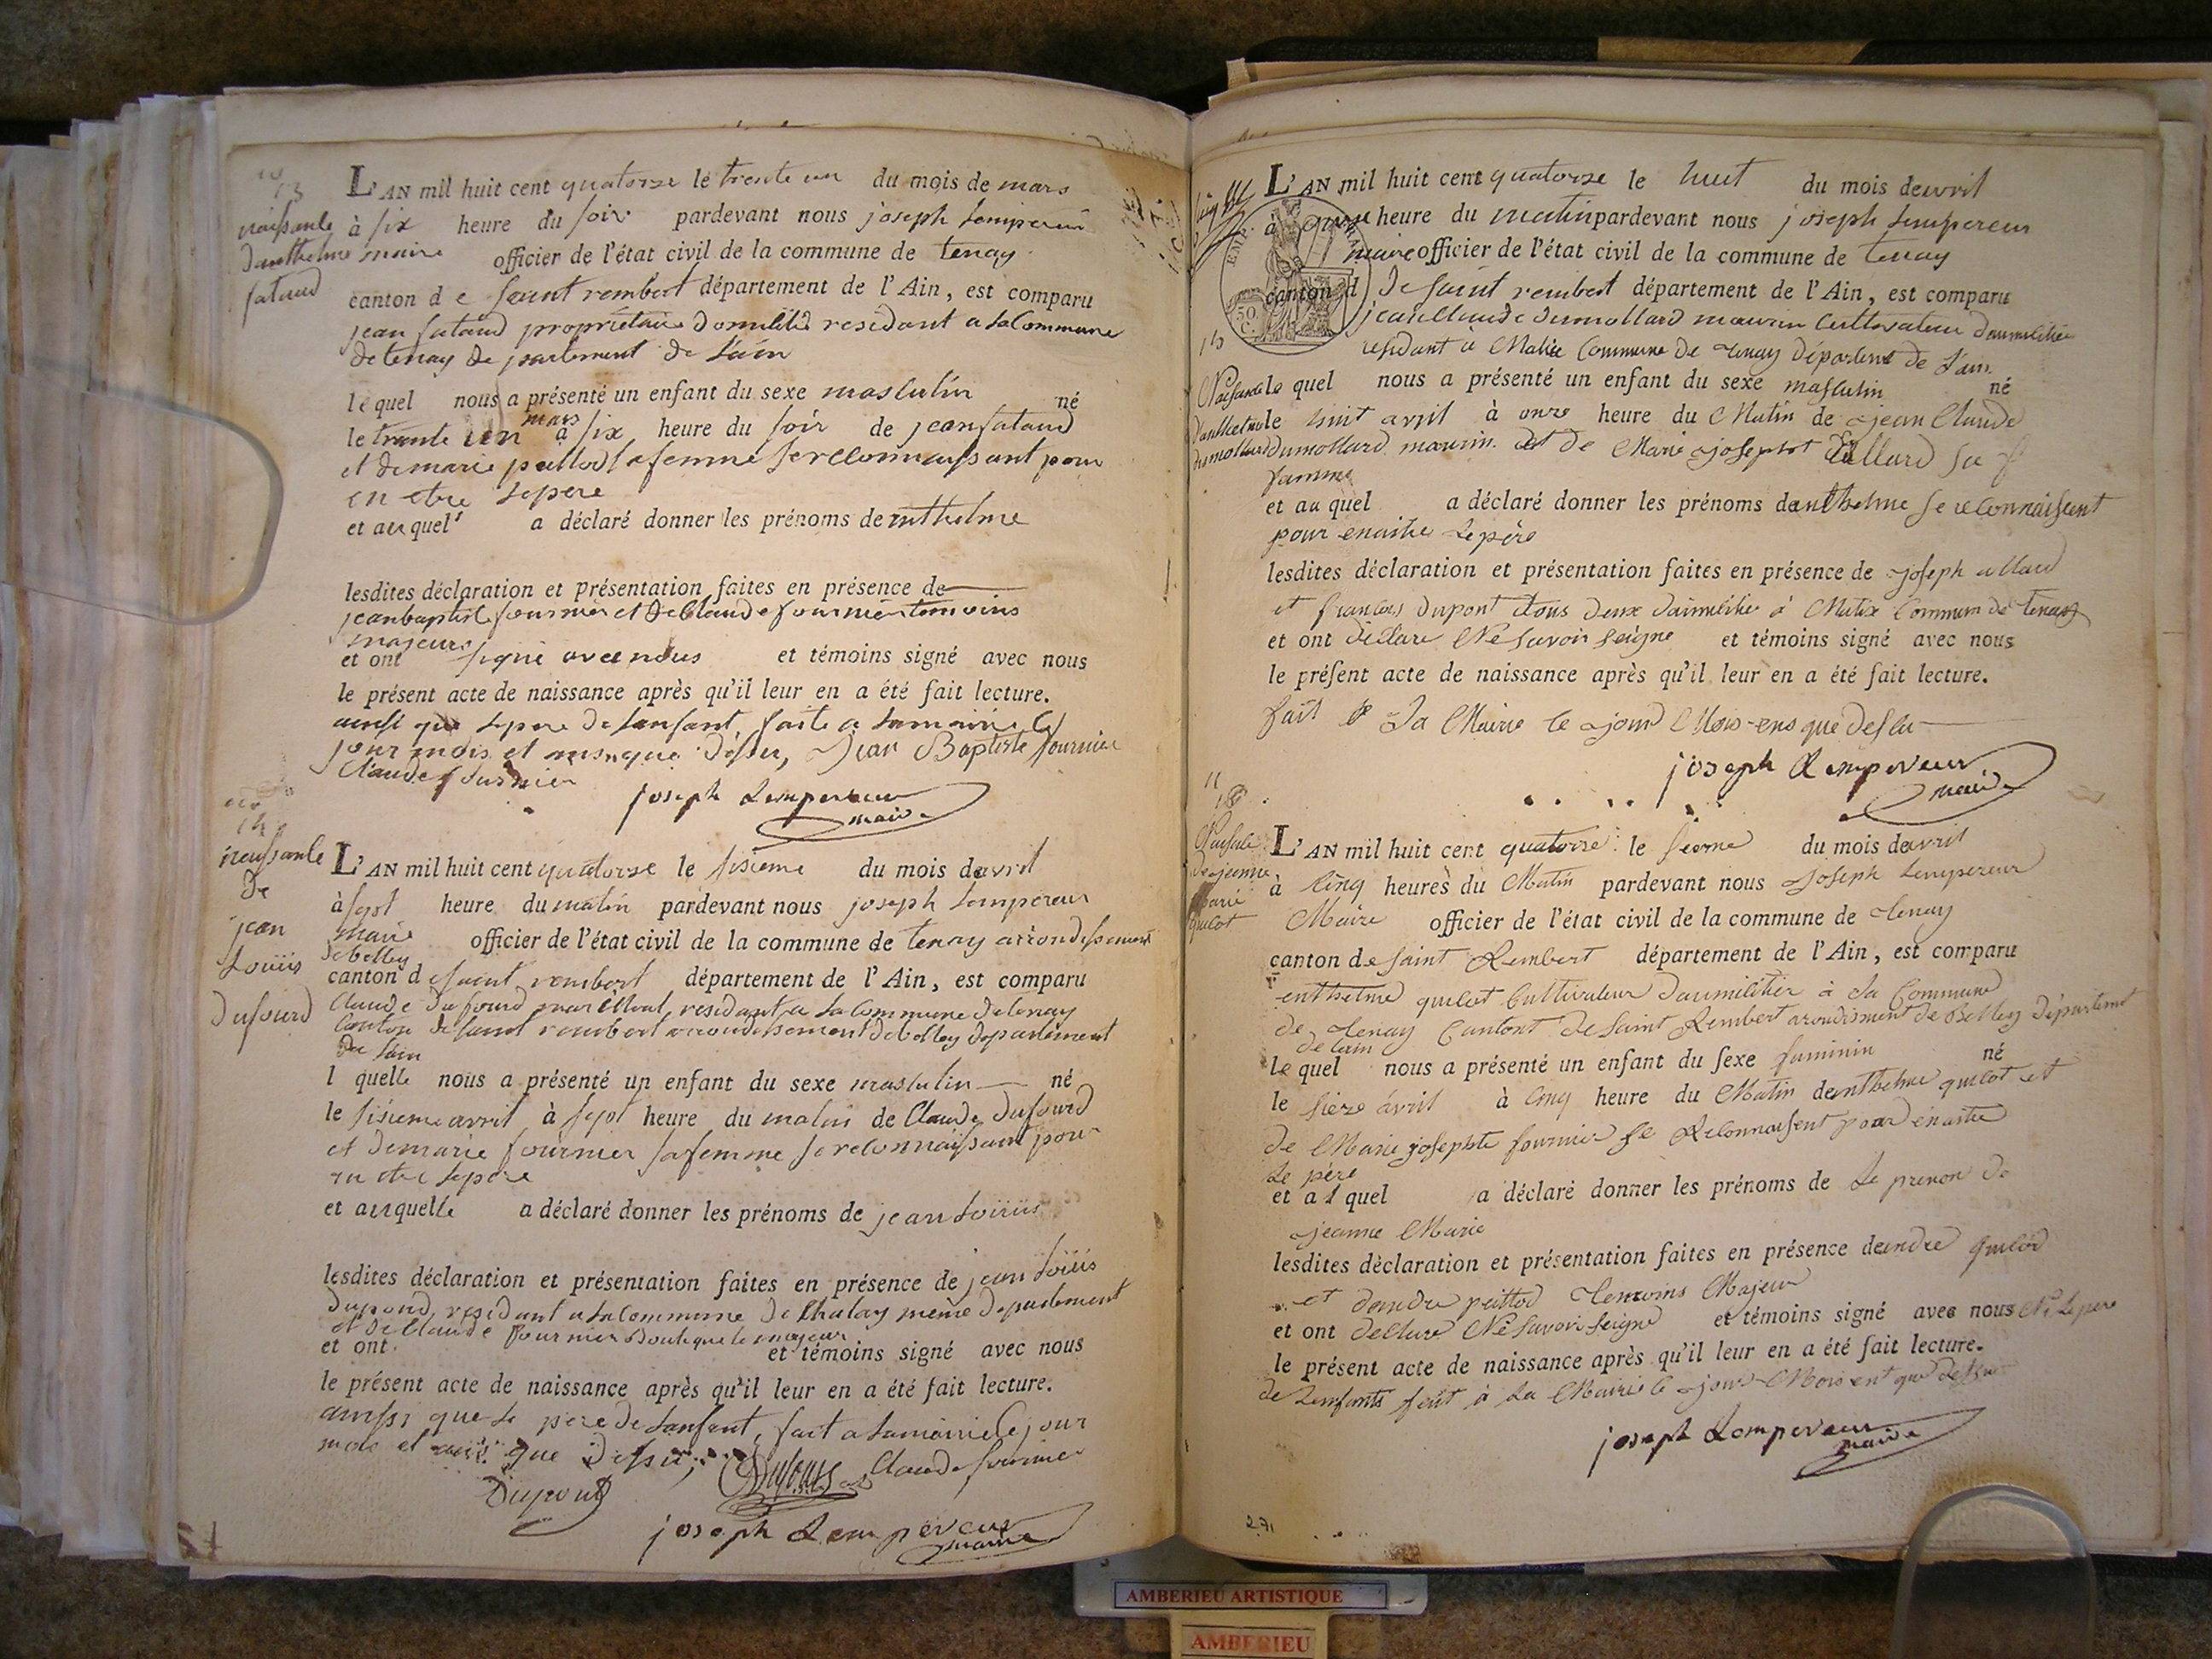 13
L'AN mil huit cent quatorze le trente un du mois de mars
naissance à six heure du soir pardevant nous joseph Lempereur
danthelme maire officier de l'état civil de la commune de tenay
fataud
canton de saint rembert département de l'Ain, est comparu
jean fataud propriétaire domilié residant a la Commune
de tenay departement de l'ain
lequel nous a présenté un enfant du sexe masculin né
le trente un mars à six heure du soir de jean fataud
et de marie pallod sa femme se reconnaissant pour
en etre le pere
et au quel a déclaré donner les prénoms de enthelme
lesdites déclaration et présentation faites en présence de
jean baptiste fournier et de Claude fournier temoins
majeurs
et ont signé avec nous et témoins signé avec nous
le présent acte de naissance après qu'il leur en a été fait lecture.
ainsi que le pere de lenfant, faite a la mairie le
jour mois et an que dessu, Jean Baptiste fournier
Claude fournier
joseph Lempereur
maire
14
naissance
de
jean
Louiis
Dufourd
L'AN mil huit cent quatorze le sisieme du mois davril
à sept heure du matin pardevant nous joseph Lempereur
maire officier de l'état civil de la commune de tenay arrondissement
de belley
canton de saint rembert département de l'Ain, est comparu
Claude Dufourd residant a la Commune de tenay
Canton de saint rembert arrondissement de belley departement
de lain
l quelle nous a présenté un enfant du sexe masculin né
le sisieme avril à sept heure du matin de Claude Dufourd
et de marie fournier sa femme se reconnaissant pour
en etre le pere
et au quelle a déclaré donner les prénoms de jean Louiis
lesdites déclaration et présentation faites en présence de jean Louiis
Dupond residant a la Commune de Chaley même departement
et de Claude fournier Boutique le majeur
et ont et témoins signé avec nous
le présent acte de naissance après qu'il leur en a été fait lecture.
ainssi que le pere de lanfant, fait a la mairie le jour
mois et an que dessu,
Dupond Claude fournier
joseph Lempereur
maire
L'AN mil huit cent quatorze le huit du mois davril
à onze heure du matin pardevant nous joseph Lempereur
maire officier de l'état civil de la commune de tenay
canton d de saint rembert département de l'Ain, est comparu
jean Claude dumollard maurin Cultivateur
residant à Malix Commune de tenay département de l'ain
15
Naisance
danthelme
dumollard
le quel nous a présenté un enfant du sexe masculin né
le huit avril à onze heure du Matin de jean Claude
dumollard maurin et de Marie josephte allard sa
famme
et au quel a déclaré donner les prénoms danthelme se reconnaissent
pour enaitre le père
lesdites déclaration et présentation faites en présence de joseph allard
et françois dupont tous deux à Malix Commun de tenay
et ont déclare Ne savoir seigne et témoins signé avec nous
le présent acte de naissance après qu'il leur en a été fait lecture.
fait a la Mairie le jour Mois ens que desu
joseph Lempereur
maire
16
Naisance
de jeanne
Marie
quilot
L'AN mil huit cent quatorze le du mois davril
à Cinq heures du Matin pardevant nous joseph Lempereur
Maire officier de l'état civil de la commune de tenay
canton de Saint Rembert département de l'Ain, est comparu
enthelme quilot Cultivateur à la Commune
de tenay Cantont de Saint Rembert arondisment de Belley département
de lain
le quel nous a présenté un enfant du sexe faminin né
le avril à Cinq heure du Matin denthelme quilot et
de Marie josephte fournier se Reconnaisent pour enaitre
le père
et a l quel a déclaré donner les prénoms de le prenon de
jeanne Marie
lesdites déclaration et présentation faites en présence deandre quilod
et dandre pallod temoins Majeur
et ont declare Ne savoir seigne et témoins signé avec nous Ni le pere
le présent acte de naissance après qu'il leur en a été fait lecture.
de lenfants fait à la Mairie le jour Mois ent que dessu
joseph Lempereur
maire
271
AMBERIEU ARTISTIQUE
AMBERIEU